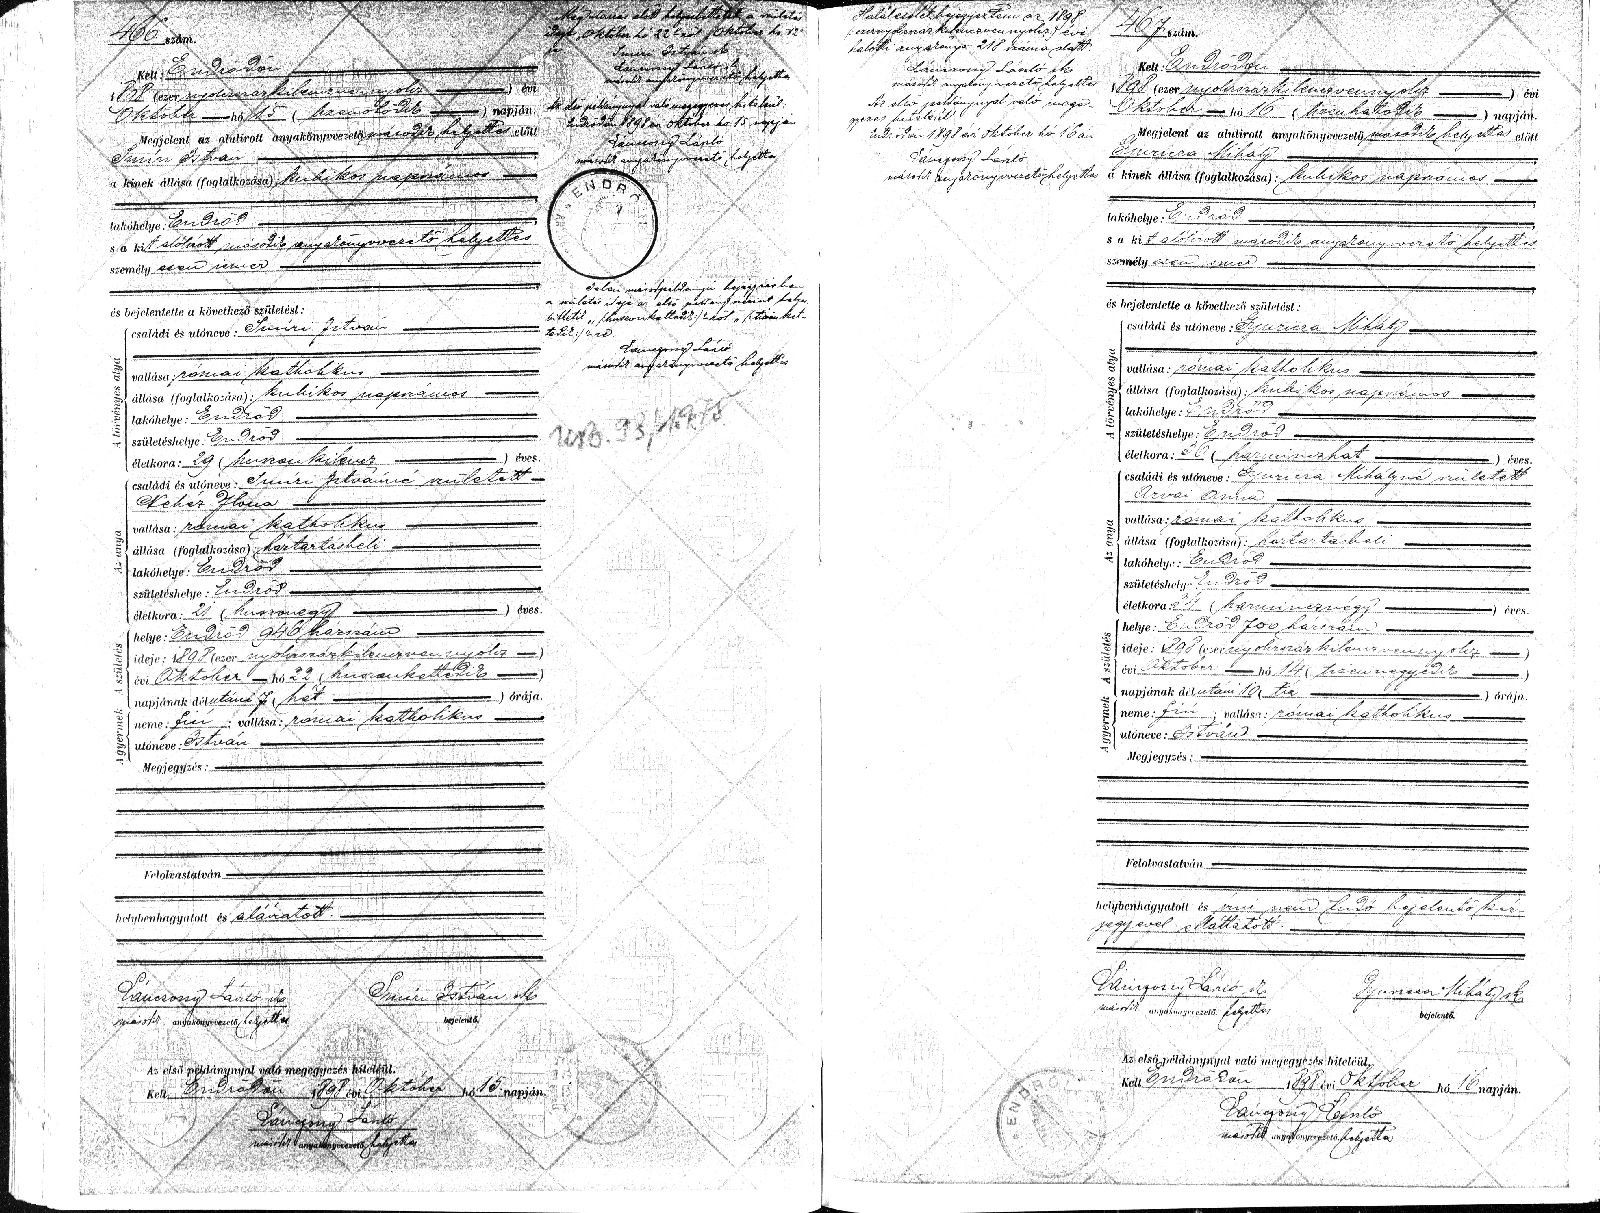 466 szám.
Kelt: Endrődön
1898 (ezer nyolcszázkilencvennyolcz) évi
Október hó 15 (tizenötödik) napján.
Megjelent az alulirott anyakönyvvezető második helyettes előtt
Smiri István
a kinek állása (foglalkozása) kubikos napszámos
lakóhelye: Endrőd
s a kit alólirott második anyakönyvvezető helyettes
személyesen ismer
és bejelentette a következő születést:
A törvényes atya
családi és utóneve: Smiri István
vallása: római katholikus
állása (foglalkozása): kubikos napszámos
lakóhelye: Endrőd
születéshelye: Endrőd
életkora: 29 (huszonkilencz) éves.
Az anya
családi és utóneve: Smiri Istvánné született
Nehéz Ilona
vallása: római katholikus
állása (foglalkozása): háztartásbeli
lakóhelye: Endrőd
születéshelye: Endrőd
életkora: 21 (huszonegy) éves.
A gyermek A születés
helye: Endrőd 946 házszám
ideje: 1898 (ezer nyolcszázkilenczvennyolcz)
évi Október hó 22 (huszonkettedik)
napjának délutáni 7 (hét) órája.
neme: fiú; vallása: római katholikus
utóneve: István
Megjegyzés:
Felolvastatván
helybenhagyatott és aláiratott.
Lánczony László sk
második anyakönyvvezető helyettes
Smiri István sk
bejelentő.
Az első példánynyal való megegyezés hiteléül.
Kelt Endrődön 1898 évi Október hó 15 napján.
Lánczony László
második anyakönyvvezető helyettes
Október hó 22 Október hó 12
Smiri István sk
Lánczony László sk
második anyakönyvvezető helyettes
Az első példánynyal való megegyezés hiteléül:
Endrődön 1898 évi október hó 15 napján
Lánczony László
második anyakönyvvezető helyettes
ENDRŐD
Jelen másodpéldányú bejegyzésben
a születés ideje az első példány szerint
Lánczony László
második anyakönyvvezető helyettes
93/1975
Halálesetét bejegyeztem az 1898
(ezernyolcszázkilenczvennyolcz) évi
halotti anyakönyv 218 száma alatt.
Lánczony László sk
második anyakönyvvezető helyettes
Az első példánynyal való megegyezés
hiteléül:
Endrődön 1898 évi Október hó 16 án
Lánczony László
második anyakönyvvezető helyettes
467 szám.
Kelt: Endrődön
1898 (ezer nyolcszázkilenczvennyolcz) évi
Október hó 16 (tizenhatodik) napján.
Megjelent az alulirott anyakönyvvezető második helyettes előtt
Gyuricza Mihály
a kinek állása (foglalkozása): kubikos napszámos
lakóhelye: Endrőd
s a kit alólirott második anyakönyvvezető helyettes
személyesen ismer
és bejelentette a következő születést:
A törvényes atya
családi és utóneve: Gyuricza Mihály
vallása: római katholikus
állása (foglalkozása): kubikos napszámos
lakóhelye: Endrőd
születéshelye: Endrőd
életkora: 36 (harminczhat) éves.
Az anya
családi és utóneve: Gyuricza Mihályné született
Arvai Anna
vallása: római katholikus
állása (foglalkozása): háztartásbeli
lakóhelye: Endrőd
születéshelye: Endrőd
életkora: 34 (harmincznégy) éves.
A gyermek A születés
helye: Endrőd 700 házszám
ideje: 1898 (ezer nyolcszázkilenczvennyolcz)
évi Október hó 14 (tizennegyedik)
napjának délutáni 10 (tíz) órája.
neme: fiú; vallása: római katholikus
utóneve: István
Megjegyzés:
Felolvastatván
helybenhagyatott és irni nem tudó bejelentő kéz-
jegyével elláttatott.
Lánczony László sk
második anyakönyvvezető helyettes
Gyuricza Mihály sk
bejelentő.
Az első példánynyal való megegyezés hiteléül.
Kelt Endrődön 1898 évi Október hó 16 napján.
Lánczony László
második anyakönyvvezető helyettes
ENDRŐD